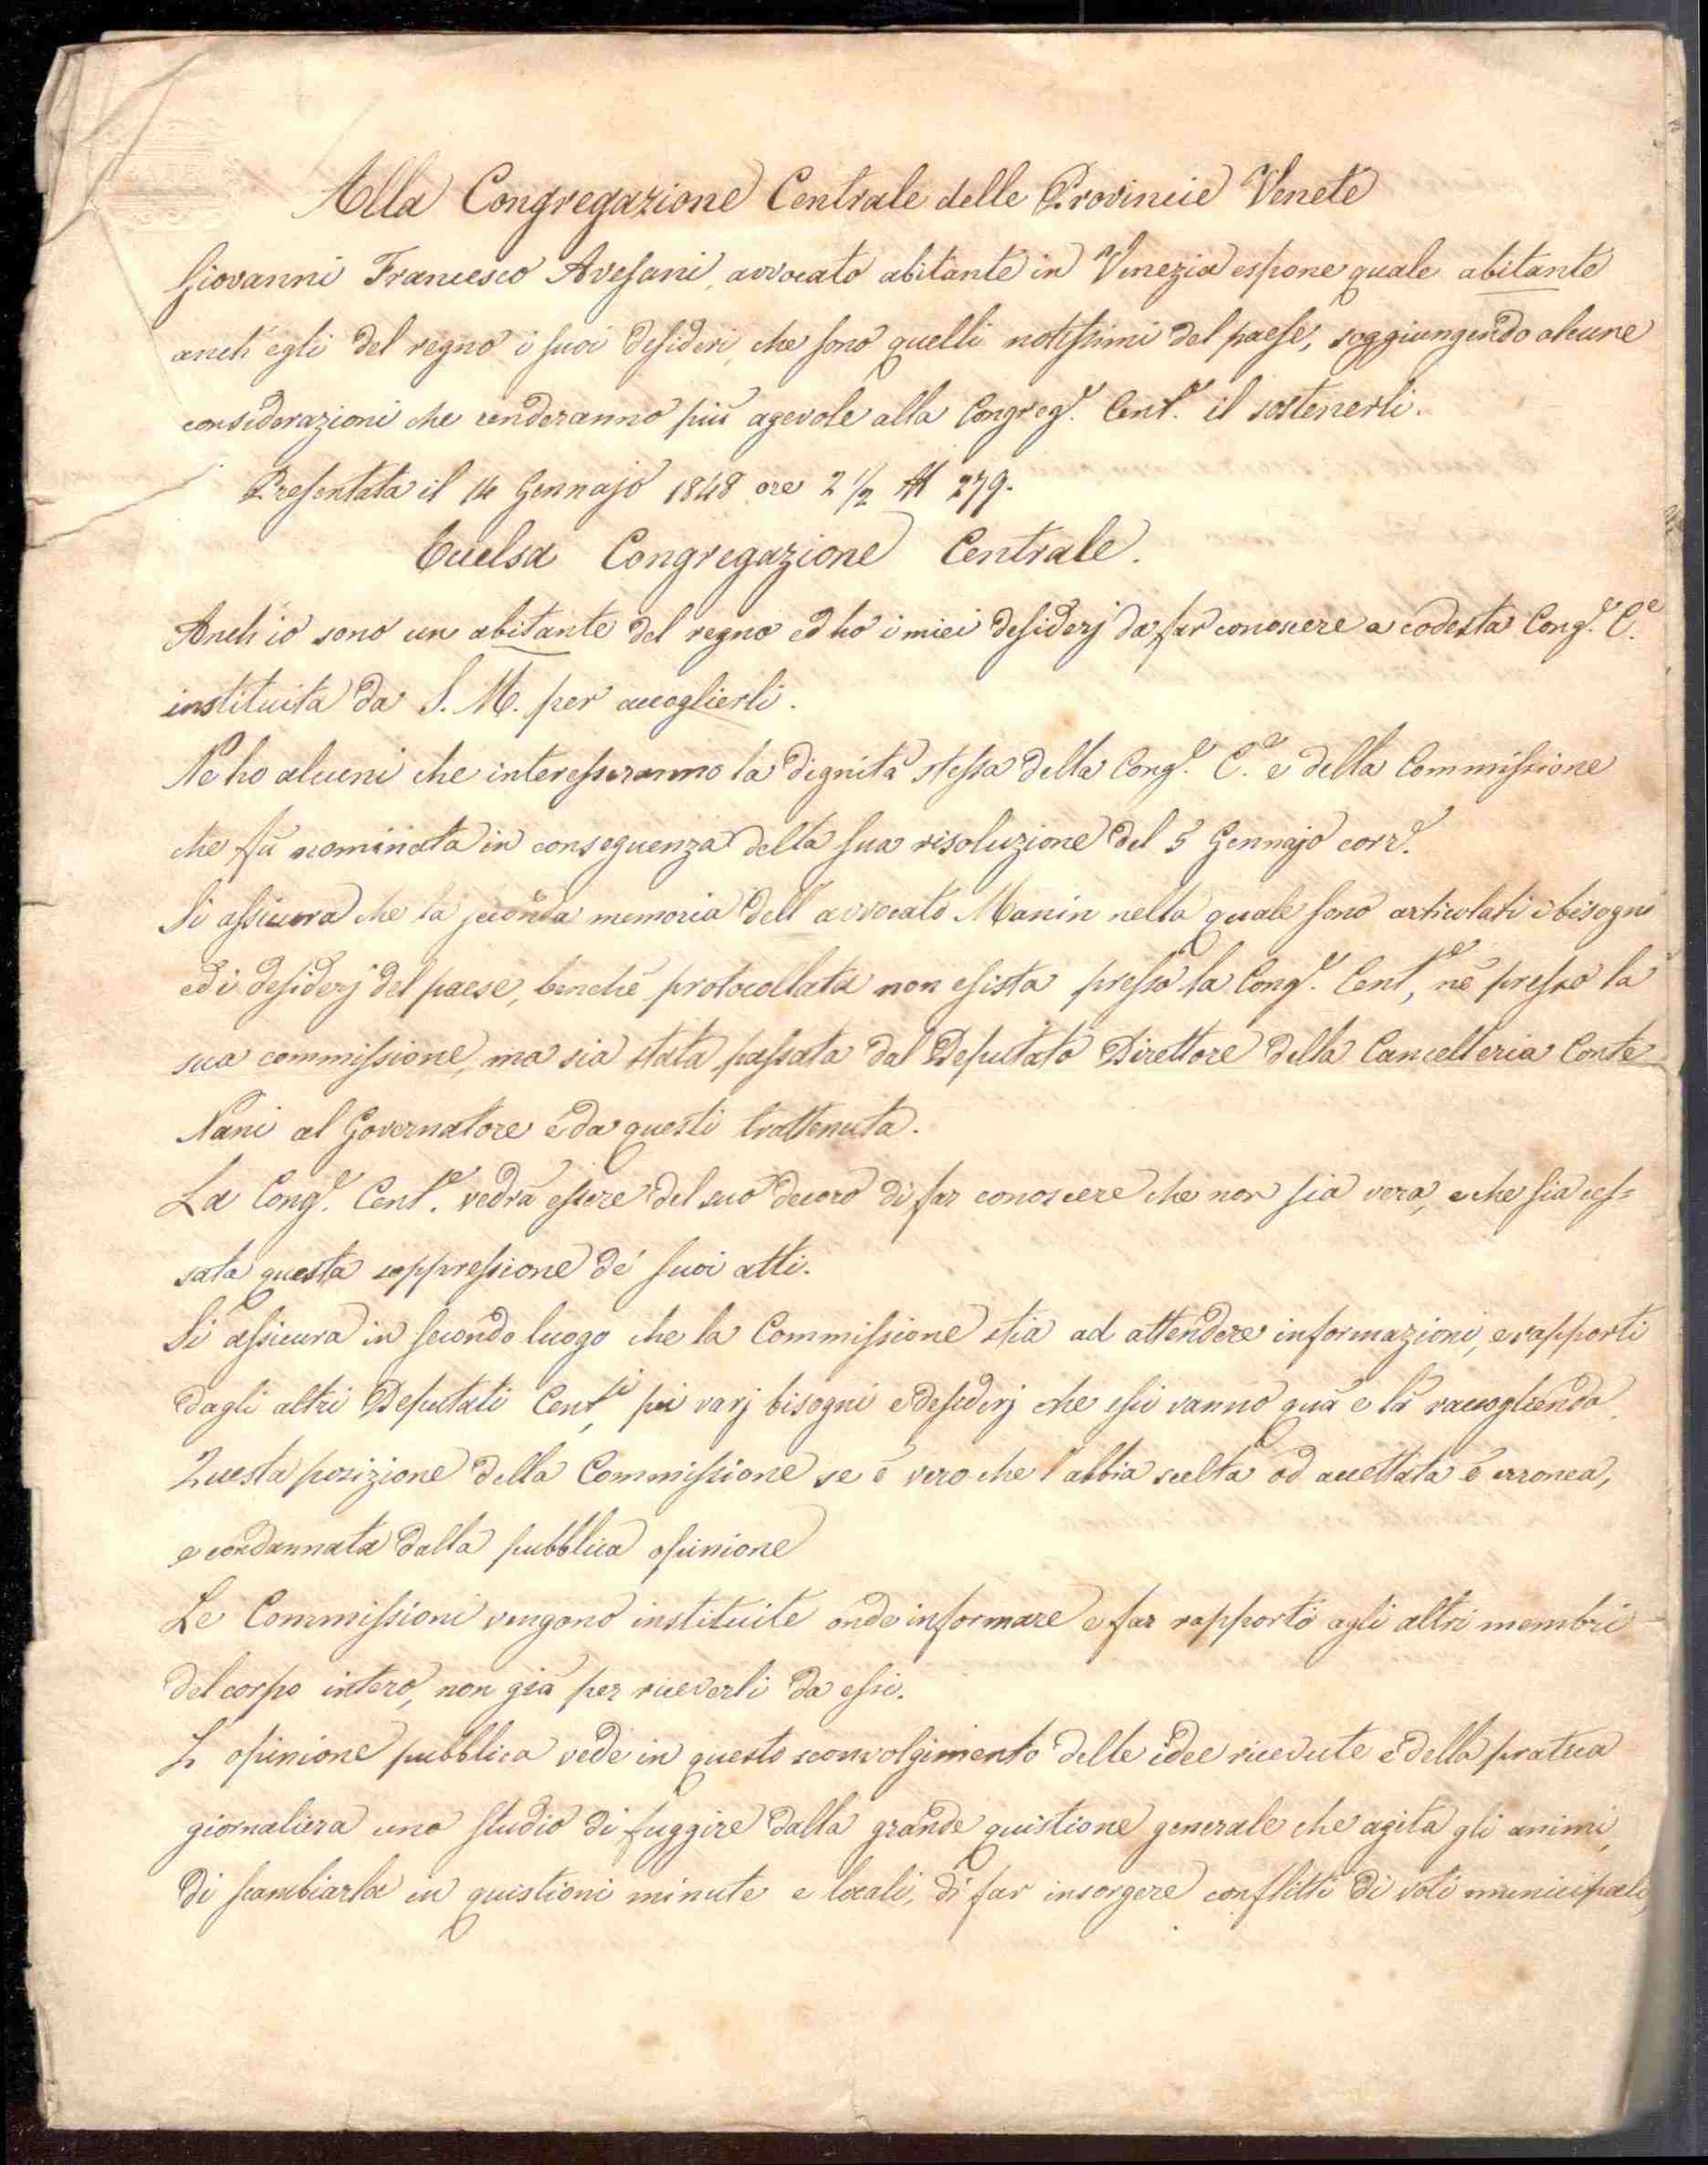 Alla Congregazione Centrale delle Provincie Venete
Giovanni Francesco Avesani, avvocato abitante in Venezia espone quale abitante
anch'egli del regno i suoi desideri, che sono quelli notissimi del paese, soggiungendo alcune
considerazioni che renderanno più agevole alla Congreg.e Cent.e il sostenerli.
Presentata il 14 Gennajo 1848 ore 2 1/2 N 279.
Eccelsa Congregazione Centrale.
Anch'io sono un abitante del regno ed ho i miei desiderj da far conoscere a codesta Cong.e C.e
instituita da S. M. per accoglierli.
Ne ho alcuni che interesseranno la dignità stessa della Cong.e C.e e della Commissione
che fù nominata in conseguenza della sua risoluzione del 5 Gennajo corr.e
Si assicura che la seconda memoria dell'avvocato Manin nella quale sono articolati i bisogni
ed i desiderj del paese, benchè protocollata non esista presso la Cong.e Cent.e, nè presso la
sua commissione, ma sia stata passata dal Deputato Direttore della Cancelleria Conte
Nani al Governatore e da questi trattenuta.
La Cong.e Cent.e vedrà essere del suo decoro di far conoscere che non sia vera, e che sia ces=
sata questa soppressione de' suoi atti.
Si assicura in secondo luogo che la Commissione stia ad attendere informazioni, e rapporti
dagli altri Deputati Cent.i, pei varj bisogni e desiderj che essi vanno quà e là raccogliendo.
Questa posizione della Commissione se è vero che l'abbia scelta od accettata è erronea,
e condannata dalla pubblica opinione
Le Commissioni vengono instituite onde informare e far rapporto agli altri membri
del corpo intero, non già per riceverli da essi.
L'opinione pubblica vede in questo sconvolgimento delle idee ricevute e della pratica
giornaliera uno studio di fuggire dalla grande quistione generale che agita gli animi,
di scambiarla in quistioni minute e locali, di far insorgere conflitti di voti municipali,